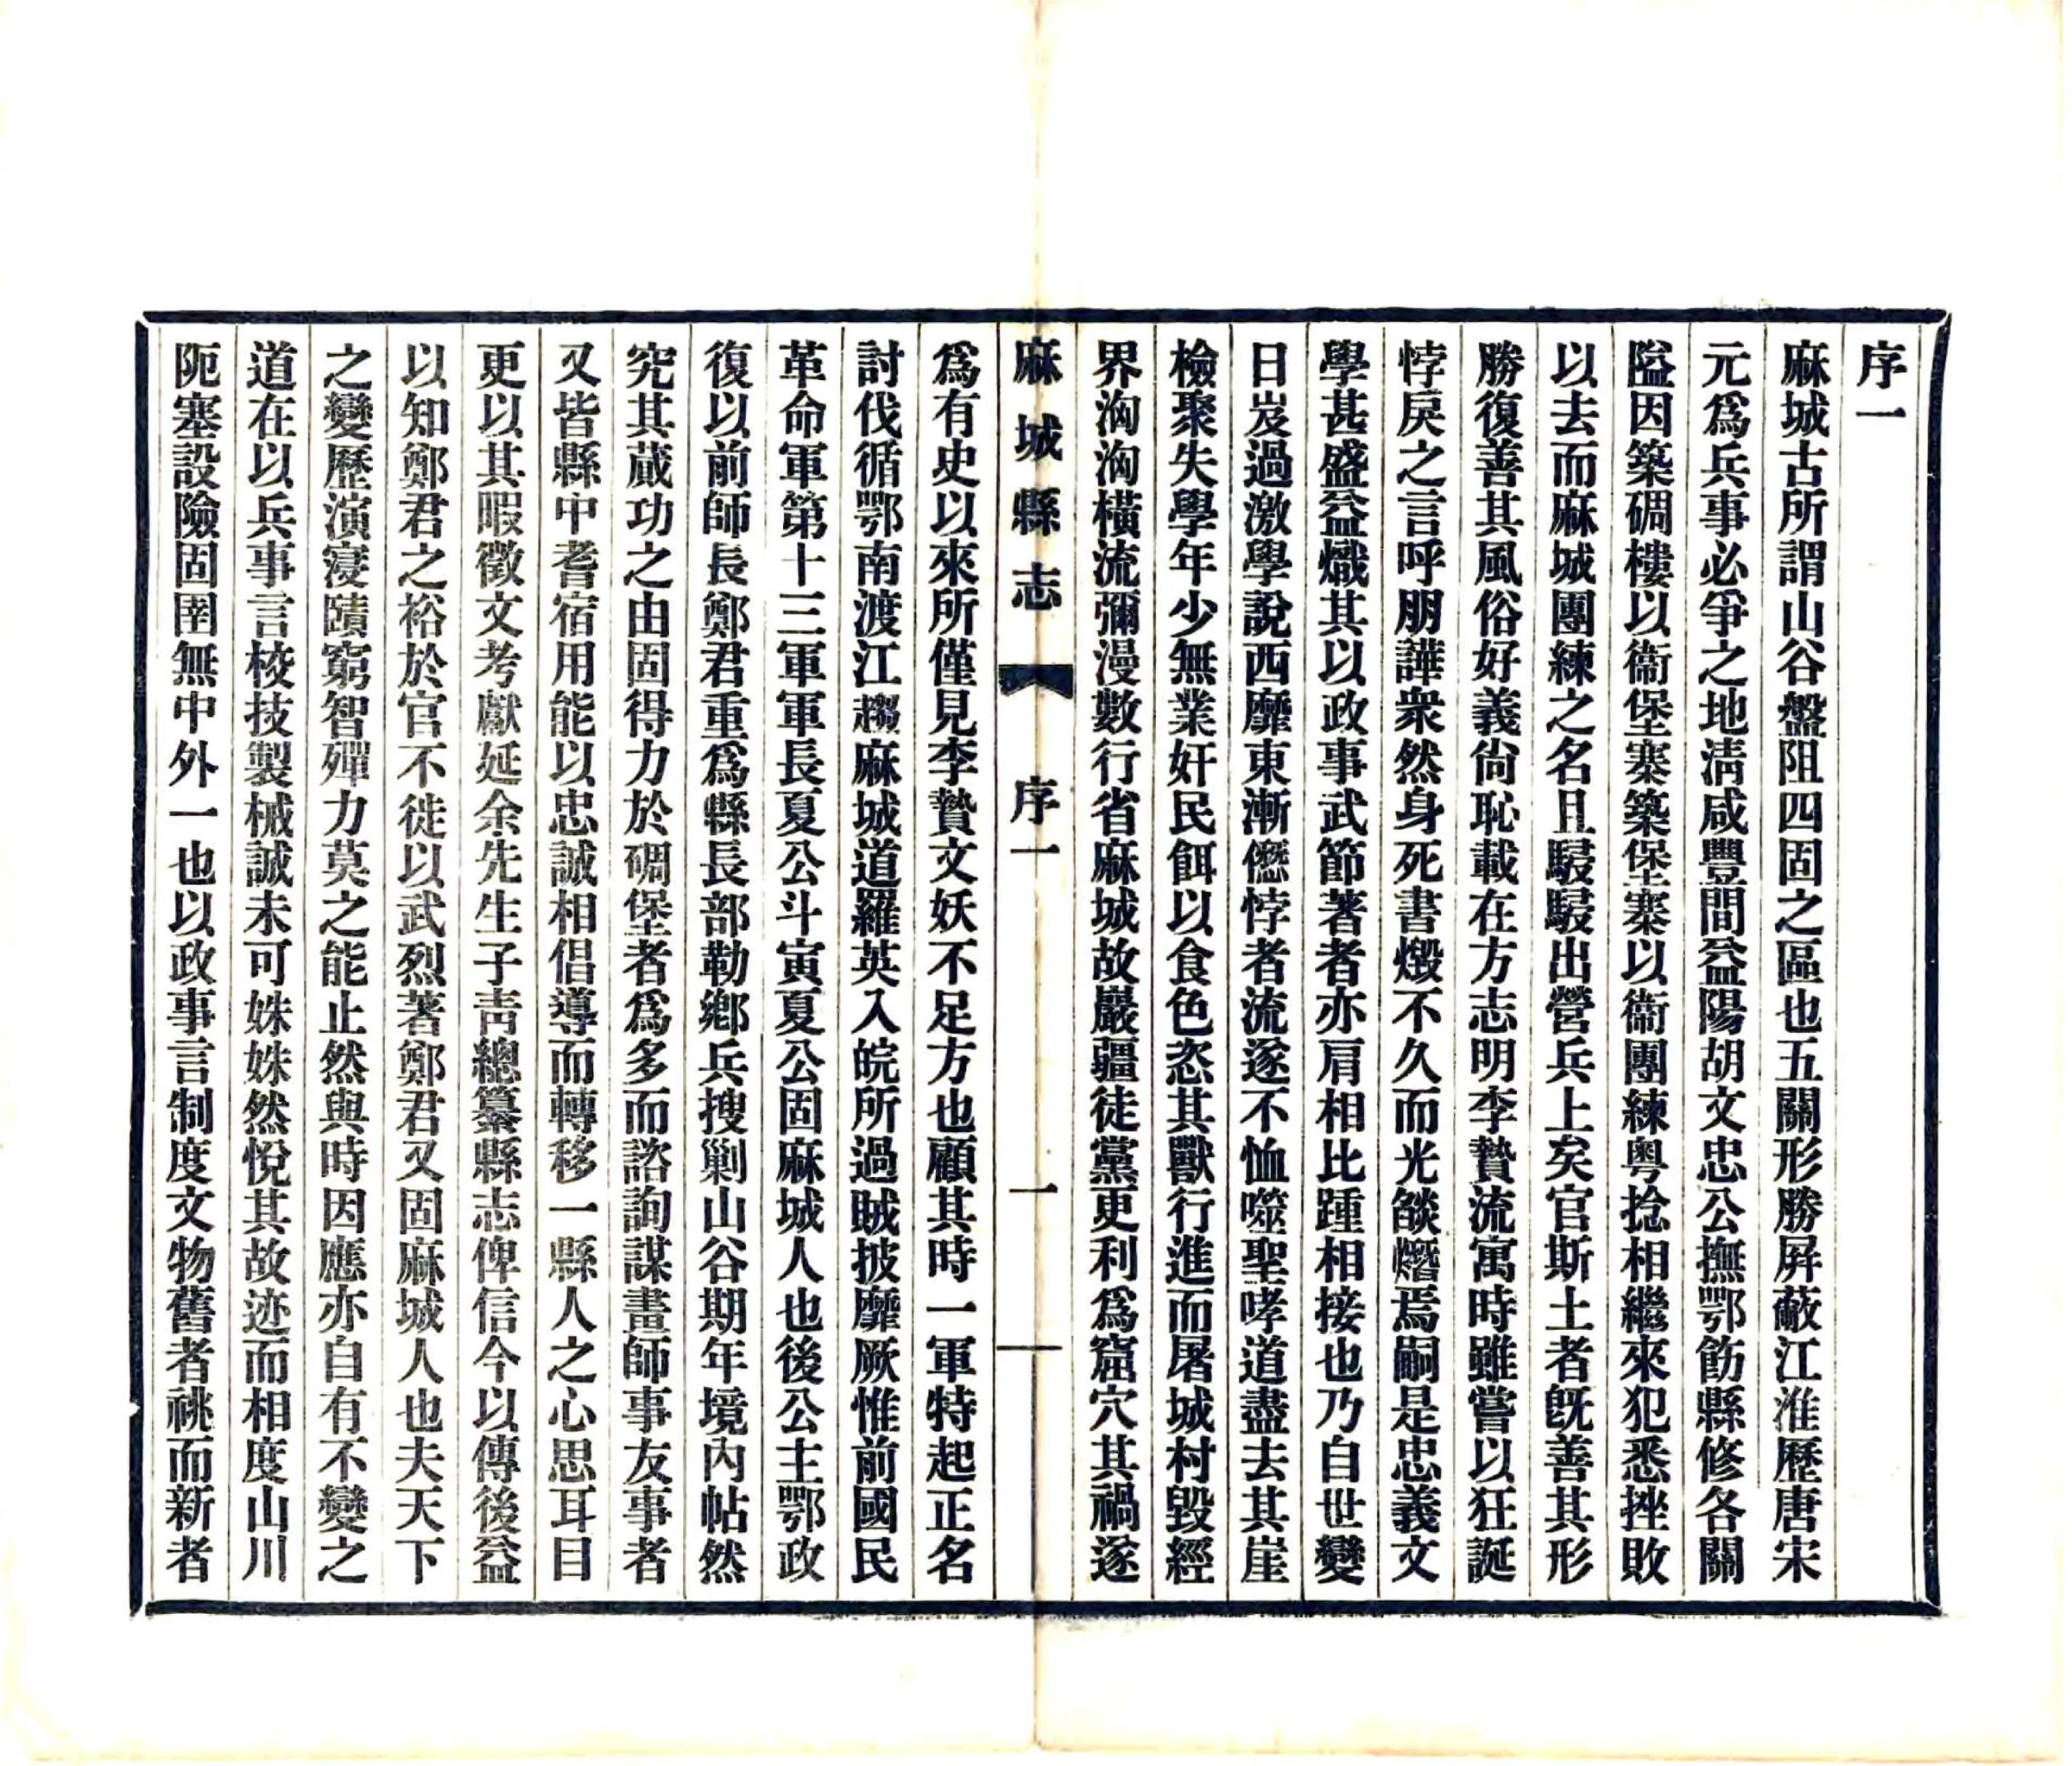 序一
麻城古所謂山谷盤阻四固之區也五關形勝屛蔽江淮歷唐宋
元爲兵事必爭之地淸咸豐間益陽胡文忠公撫鄂飭縣修各關
隘因築碉樓以衞堡寨築堡寨以衞團練粵捻相繼來犯悉挫敗
以去而麻城團練之名且駸駸出營兵上矣官斯土者旣善其形
勝復善其風俗好義尙恥載在方志明李贄流寓時雖嘗以狂誕
悖戾之言呼朋譁衆然身死書燬不久而光燄熸焉嗣是忠義文
學甚盛益熾其以政事武節著者亦肩相比踵相接也乃自世變
日岌過激學說西靡東漸儮悖者流遂不恤噬聖哮道盡去其崖
檢聚失學年少無業奸民餌以食色恣其獸行進而屠城村毀經
界洶洶橫流彌漫數行省麻城故巖疆徒黨更利爲窟穴其禍遂
麻城縣志 序一 一
爲有史以來所僅見李贄文妖不足方也顧其時一軍特起正名
討伐循鄂南渡江趨麻城道羅英入皖所過賊披靡厥惟前國民
革命軍第十三軍軍長夏公斗寅夏公固麻城人也後公主鄂政
復以前師長鄭君重爲縣長部勒鄕兵搜剿山谷期年境內帖然
究其蕆功之由固得力於碉堡者爲多而諮詢謀畫師事友事者
又皆縣中耆宿用能以忠誠相倡導而轉移一縣人之心思耳目
更以其暇徵文考獻延余先生子靑總纂縣志俾信今以傳後益
以知鄭君之裕於官不徒以武烈著鄭君又固麻城人也夫天下
之變歷演寖賾窮智殫力莫之能止然與時因應亦自有不變之
道在以兵事言校技製械誠未可姝姝然悅其故迹而相度山川
阨塞設險固圉無中外一也以政事言制度文物舊者祧而新者